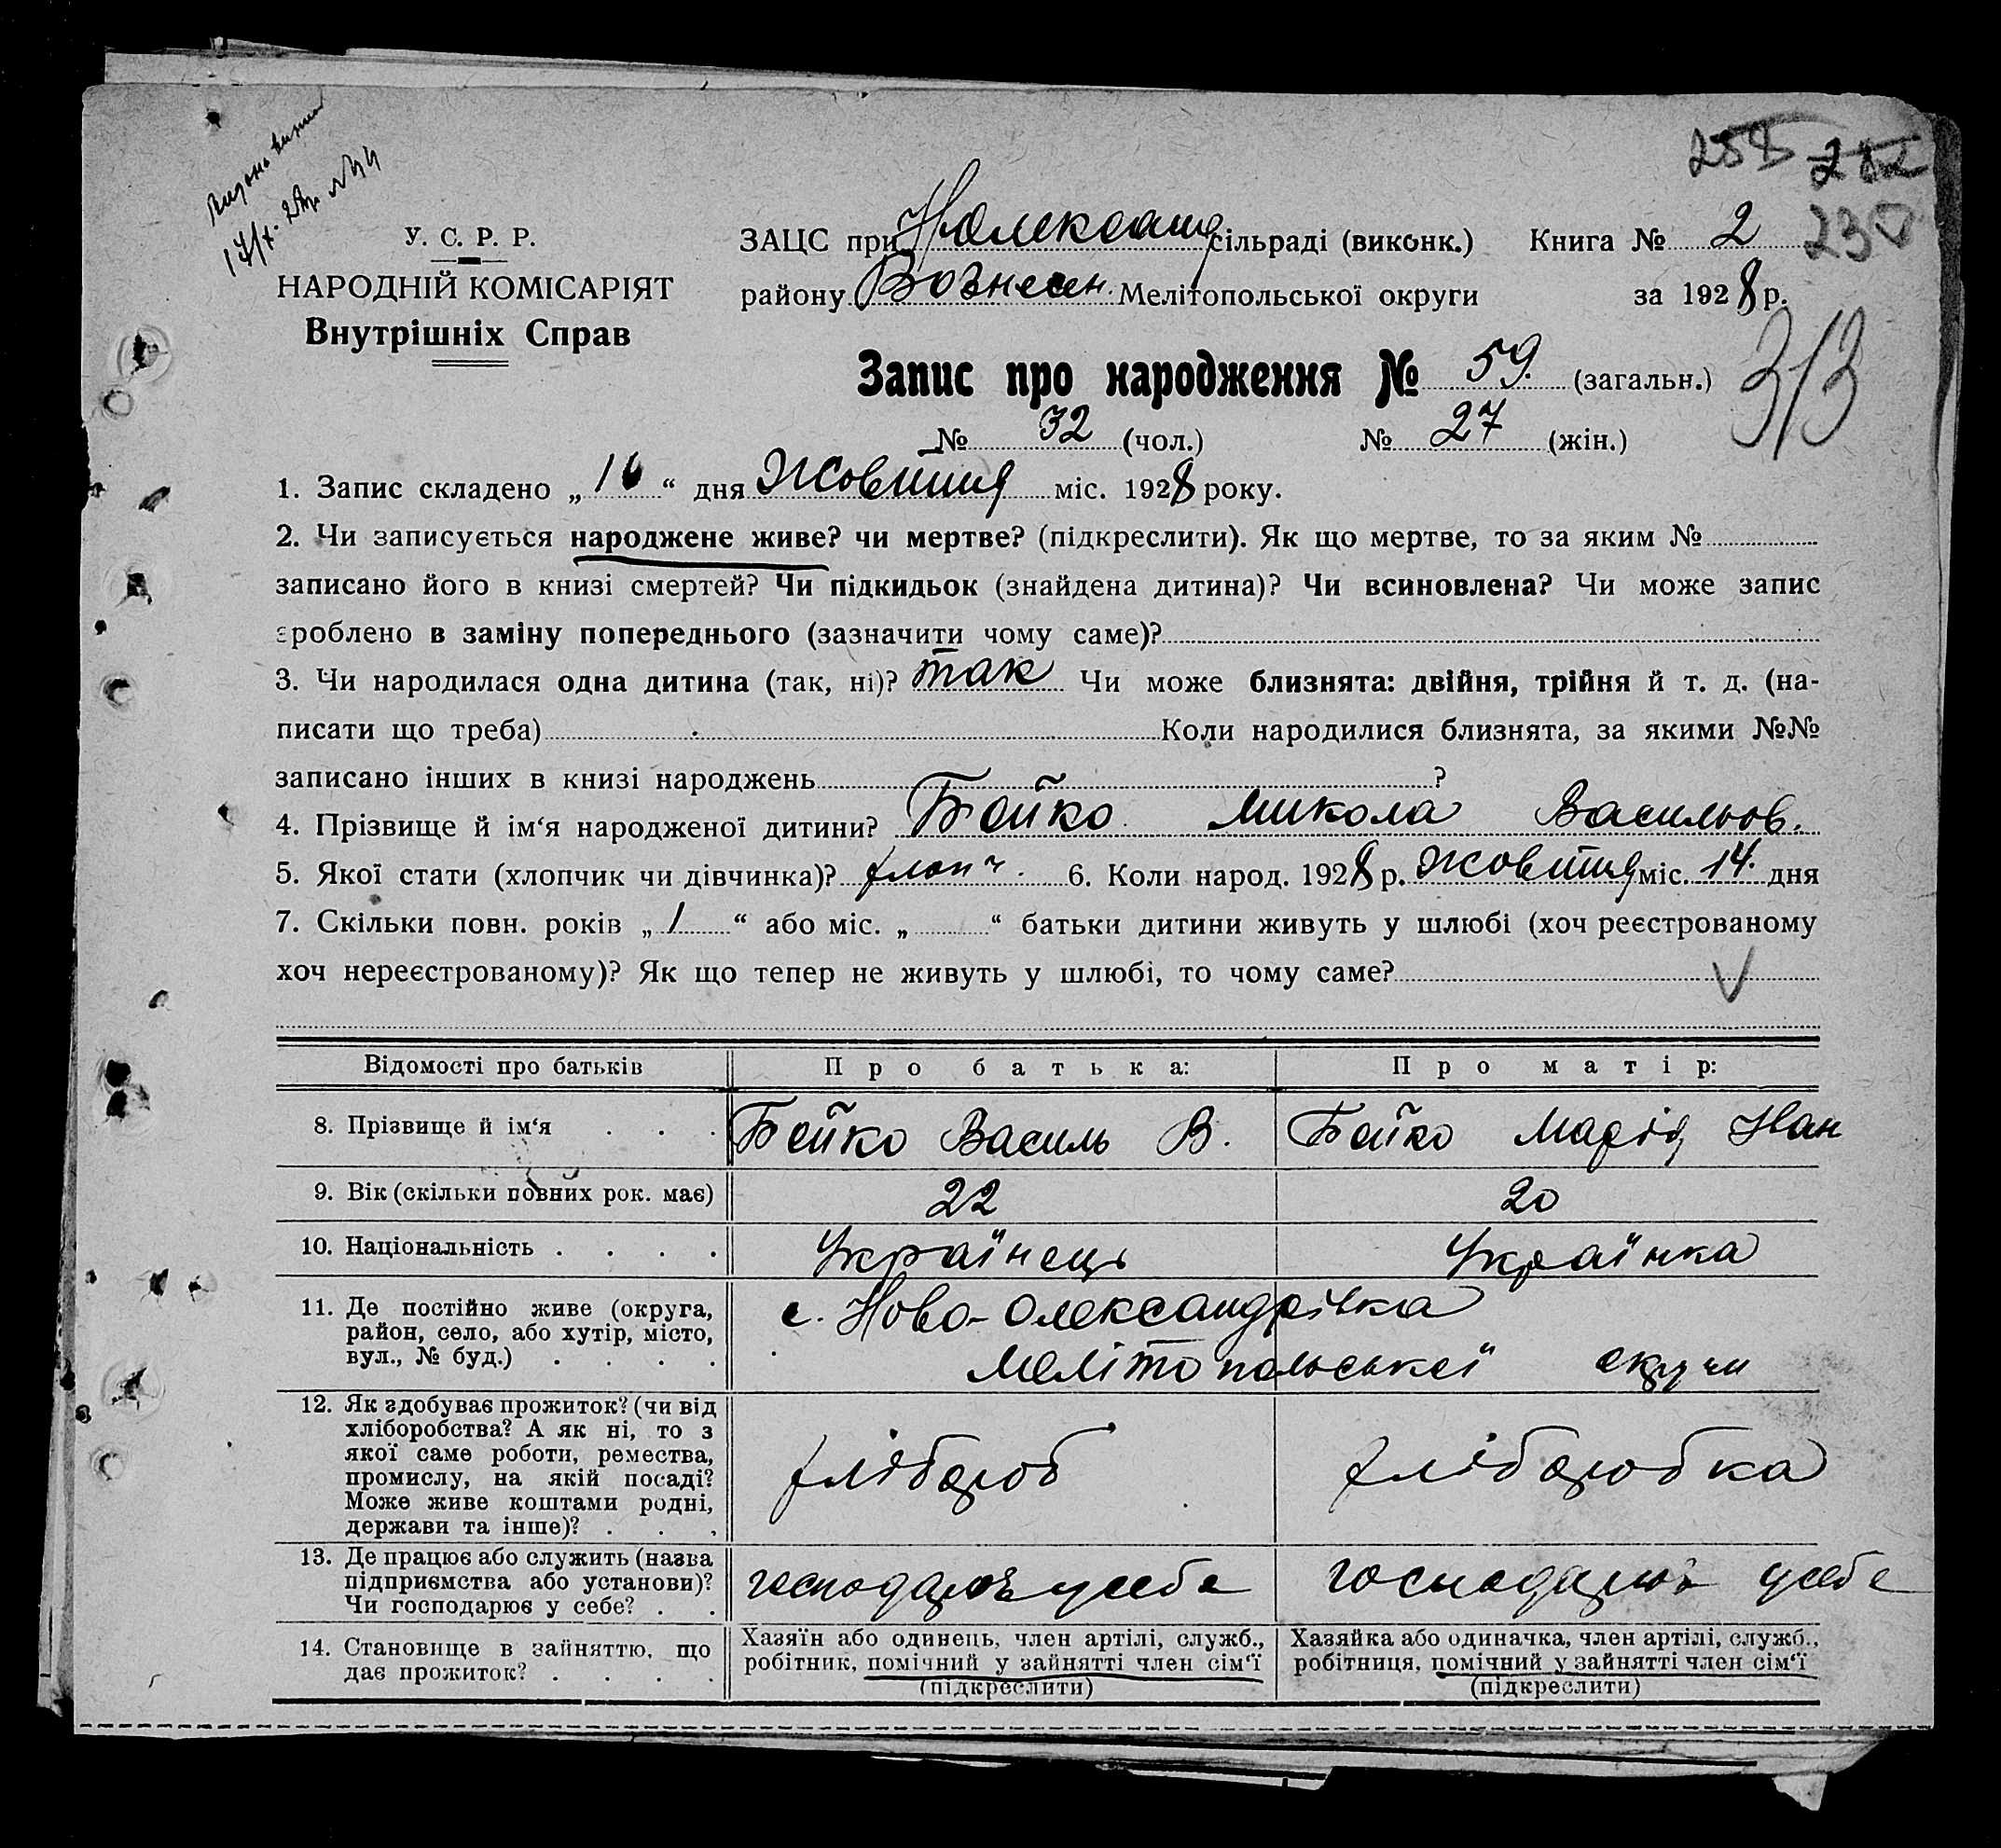 17/X. 28р. №44
258 282
230
У. С. Р. Р.
НАРОДНІЙ КОМІСАРІЯТ
Внутрішніх Справ
ЗАЦС при Н Олександр сільраді (виконк.) Книга № 2
району Вознесен. Мелітопольської округи за 1928 р.
Запис про народження № 59. (загальн.)
313
№ 32 (чол.) № 27 (жін.)
1. Запис складено „ 16 “ дня Жовтня міс. 1928 року.
2. Чи записується народжене живе? чи мертве? (підкреслити). Як що мертве, то за яким №
записано його в книзі смертей? Чи підкидьок (знайдена дитина)? Чи всиновлена? Чи може запис
зроблено в заміну попереднього (зазначити чому саме)?
3. Чи народилася одна дитина (так, ні)? так Чи може близнята: двійня, трійня й т. д. (на-
писати що треба) Коли народилися близнята, за якими №№
записано інших в книзі народжень ?
4. Прізвище й ім‘я народженої дитини? Бойко Микола Васильов.
5. Якої стати (хлопчик чи дівчинка)? хлопч. 6. Коли народ. 1928 р. Жовтня міс. 14. дня
7. Скільки повн. років „ 1 “ або міс. „ “ батьки дитини живуть у шлюбі (хоч реєстрованому
хоч нереєстрованому)? Як що тепер не живуть у шлюбі, то чому саме? V
Відомості про батьків Про батька: Про матір:
8. Прізвище й ім‘я . . . Бойко Василь В. Бойко Марія Iван
9. Вік (скільки повних рок. має) 22 20
10. Національність . . . . Українець Українка
11. Де постійно живе (округа,
район, село, або хутір, місто,
вул., № буд.) . . . .
с. Ново-Олександрівка
Мелітопольської округи
12. Як здобуває прожиток? (чи від
хліборобства? А як ні, то з
якої саме роботи, ремества,
промислу, на якій посаді?
Може живе коштами родні,
держави та інше)? . . .
хлібороб хліборобка
13. Де працює або служить (назва
підприємства або установи)?
Чи господарює у себе? . .
господарює у себе господарює у себе
14. Становище в зайняттю, що
дає прожиток? . . . .
Хазяїн або одинець, член артілі, служб.,
робітник, помічний у зайнятті член сім‘ї
(підкреслити)
Хазяйка або одиначка, член артілі, служб.,
робітниця, помічний у зайнятті член сім‘ї
(підкреслити)